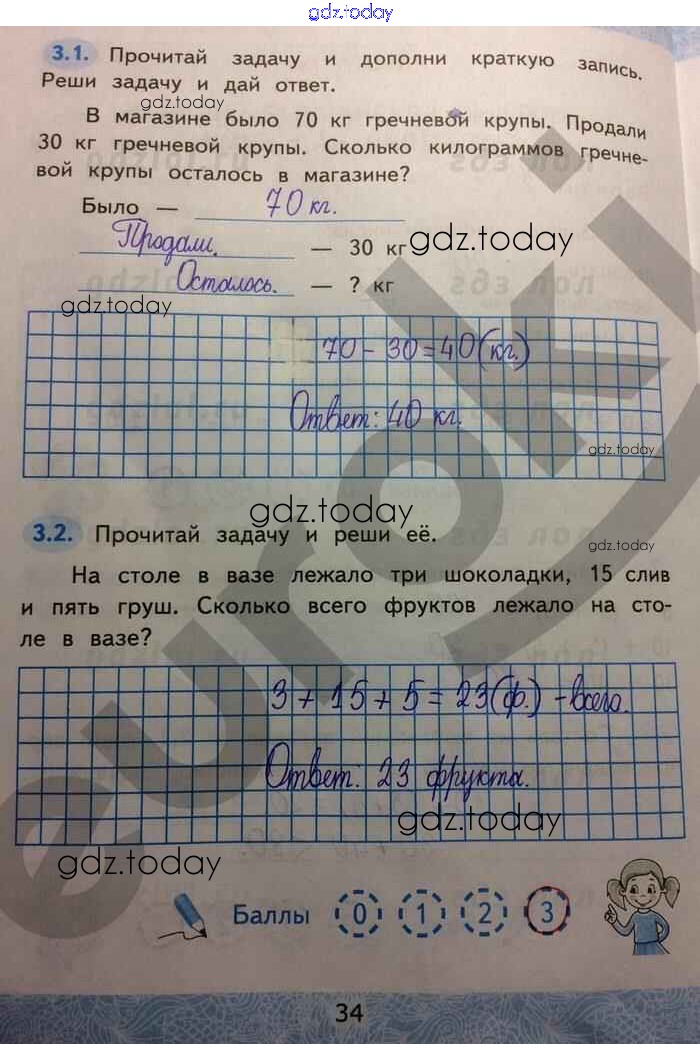 gdz.today
3.1. Прочитай задачу и дополни краткую запись.
Реши задачу и дай ответ.
gdz.today
В магазине было 70 кг гречневой крупы. Продали
30 кг гречневой крупы. Сколько килограммов гречне-
вой крупы осталось в магазине?
Было — 70 кг.
Продали. — 30 кг gdz.today
Осталось. — ? кг
gdz.today
70 - 30 = 40 (кг.)
Ответ: 40 кг.
gdz.today
gdz.today
3.2. Прочитай задачу и реши её.
gdz.today
На столе в вазе лежало три шоколадки, 15 слив
и пять груш. Сколько всего фруктов лежало на сто-
ле в вазе?
3 + 15 + 5 = 23 (ф.) - всего.
Ответ: 23 фрукта.
gdz.today
gdz.today
Баллы 0 1 2 3
34
euroki